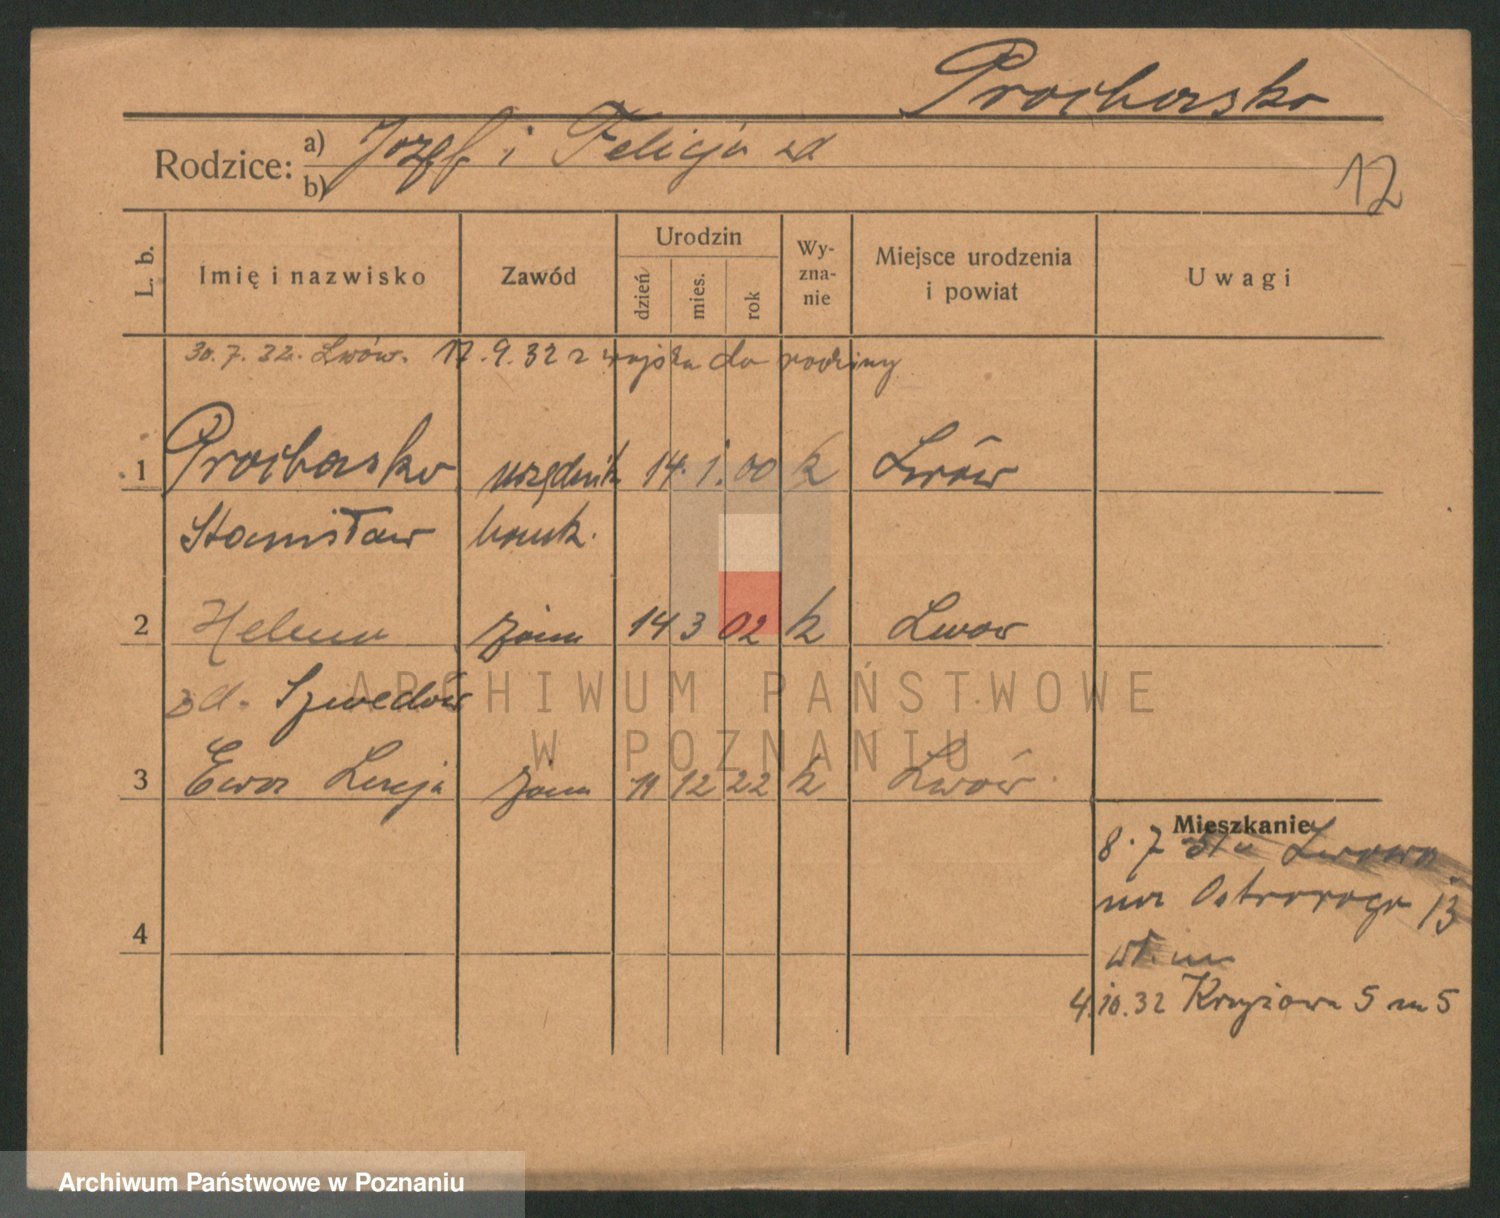 Prochaska
Rodzice: a) Józef i Felicja zd
b)
12
L. b. Imię i nazwisko Zawód Urodzin dzień mies. rok Wy-zna-nie Miejsce urodzenia i powiat Uwagi
30.7.22. Lwów. 17.9.32 z wojska do rodziny
1 Prochaska urzędnik 14. 1. 00 k Lwów
Stanisław bank.
2 Helena żona 14 3 02 k Lwow
zd. Szwedów
3 Ewa Lucja 11 12 22 k Lwów
Mieszkanie
8.7 31 Lwowa
na Ostroroga 13
4
4.10.32 Krzyżowa 5 m 5
ARCHIWUM PAŃSTWOWE
W POZNANIU
Archiwum Państwowe w Poznaniu